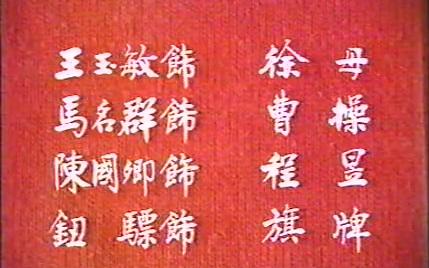 王玉敏飾 徐母
馬名群飾 曹操
陳國卿飾 程昱
鈕驃飾 旗牌